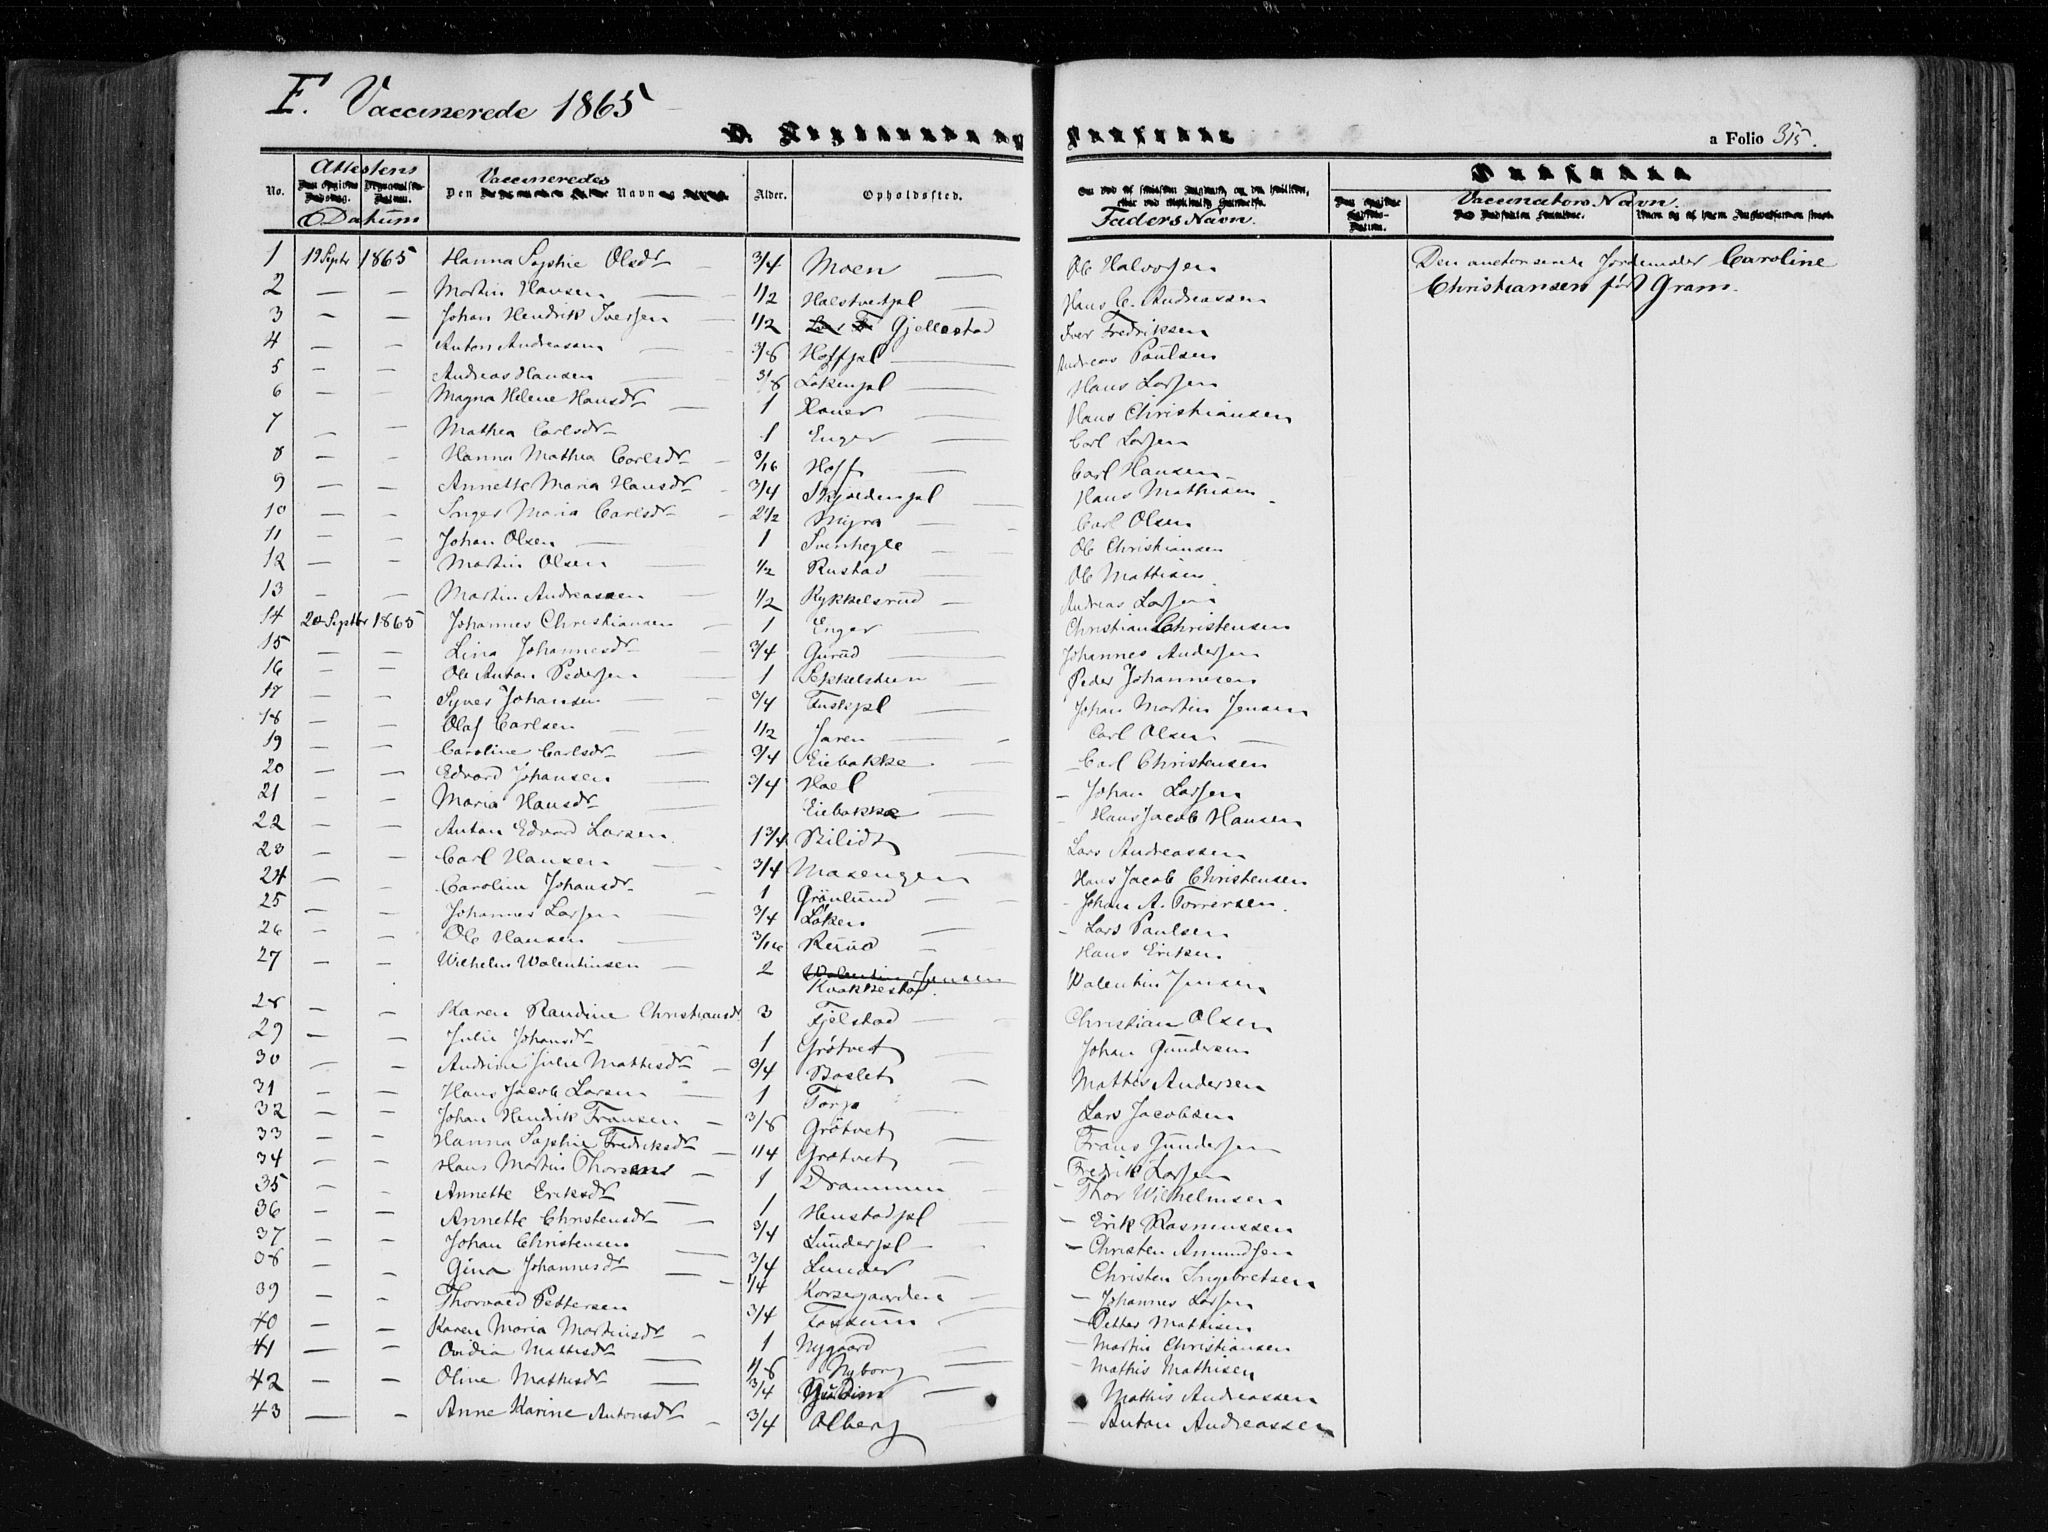 F. Vaccinerede 1865
a Folio 315.
No. Attestens Datum Den Vaccineredes Navn Alder. Opholdssted. Faders Navn. Vaccinators Navn.
1 19 Septr 1865 Hanna Sophie Olsdr — 3/4 Moen — Ole Halvorsen Den autoriserede Jordemoder Caroline
2 — — Martin Hansen — 1/2 Halstvetpl — Hans C. Andreassen Christiansen født Gram.
3 — — Johan Hendrik Iversen — 1/2 Gjellestad Iver Fredriksen
4 — — Anton Andreassen — 3/8 Hoffpl — Andreas Paulsen
5 — — Andreas Hansen — 3/8 Lökenpl — Hans Larsen
6 — — Magna Helene Hansdr — 1 Haner — Hans Christiansen
7 — — Mathea Carlsdr — 1 Enger — Carl Larsen
8 — — Hanna Mathea Carlsdr — 3/16 Hoff — Carl Hansen
9 — — Annette Maria Hansdr — 3/4 Skjoldenpl — Hans Mathisen
10 — — Inger Maria Carlsdr — 2 1/2 Myra — Carl Olsen
11 — — Johan Olsen — 1 Svenhegle — Ole Christiansen
12 — — Martin Olsen — 1/2 Rustad — Ole Mattisen
13 — — Martin Andreassen — 1/2 Rykkelsrud — Andreas Larsen
14 20 Septbr 1865 Johannes Christiansen — 1 Enger — Christian Christensen
15 — — Lina Johannesdr — 3/4 Gurud — Johannes Andersen
16 — — Ole Anton Pedersen — 1 Sekkelsteen — Peder Johannesen
17 — — Syver Johansen — 3/4 Fuskpl — Johan Martin Jensen
18 — — Olaf Carlsen — 1/2 Jaren — Carl Olsen —
19 — — Caroline Carlsdr — 3/4 Eiebakke — Carl Christensen
20 — — Edvard Johansen 3/4 Hael — Johan Larsen
21 — — Maria Hansdr — Eiebakke — Hans Jacob Hansen
22 — — Anton Edvard Larsen 1 3/4 Bilidt — Lars Andreassen
23 — — Carl Hansen — 3/4 Masengen — Hans Jacob Christensen
24 — — Caroline Johansdr — 1 Grönlund — Johan A. Torrersen.
25 — — Johannes Larsen — 3/4 Löken — Lars Paulsen
26 — — Ole Hansen — 3/16 Ruud — Hans Eriksen
27 — — Wilhelm Walentinsen — 2 Walentin Jensen Kvakkestad. Walentin Jensen
28 — — Karen Randine Christiansdr 3 Fjelstad — Christian Olsen
29 — — Julie Johansdr — 1 Grötvet — Johan Gundersen
30 — — Andrine Julie Mattisdr — 3/4 Baslet — Mattis Andersen
31 — — Hans Jacob Larsen — 1 Torp — Lars Jacobsen
32 — — Johan Hendrik Fransen — 3/8 Grötvet — Frans Gundersen
33 — — Hanna Sophie Fredriksdr 1/4 Grötvet — Fredrik Larsen
34 — — Hans Martin Thorsen — 1 Drammen — Thor Wilhelmsen
35 — — Annette Eriksdr — 1 Henstadpl — Erik Rasmussen
36 — — Annette Christensdr — 3/4 Lunderpl — Christen Amundsen
37 — — Johan Christensen — 3/4 Lunder — Christen Ingebretsen
38 — — Gina Johannesdr — 1/4 Korsegaarden — Johannes Larsen
39 — — Thorvald Pettersen 3/4 Fossum — Petter Mattisen
40 — — Karen Maria Martinsdr — 1 Nygaard — Martin Christiansen
41 — — Ovidia Mattisdr — 1/8 Nyborg — Mathis Mathisen
42 — — Oline Mathisdr — 3/4 — Mathis Andreassen
43 — — Anne Karine Antonsdr — 3/4 Olberg — Anton Andreassen